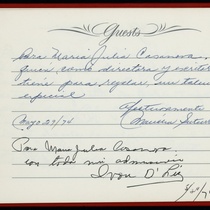 Guests
Para Maria Julia Casanova,
quien, como directora y escritora
tiene para regalar, su talento
especial
Afectuosamente
Mayo 29/74
Para Maria Julia Casanova
con toda mi admiración
Ivon D'